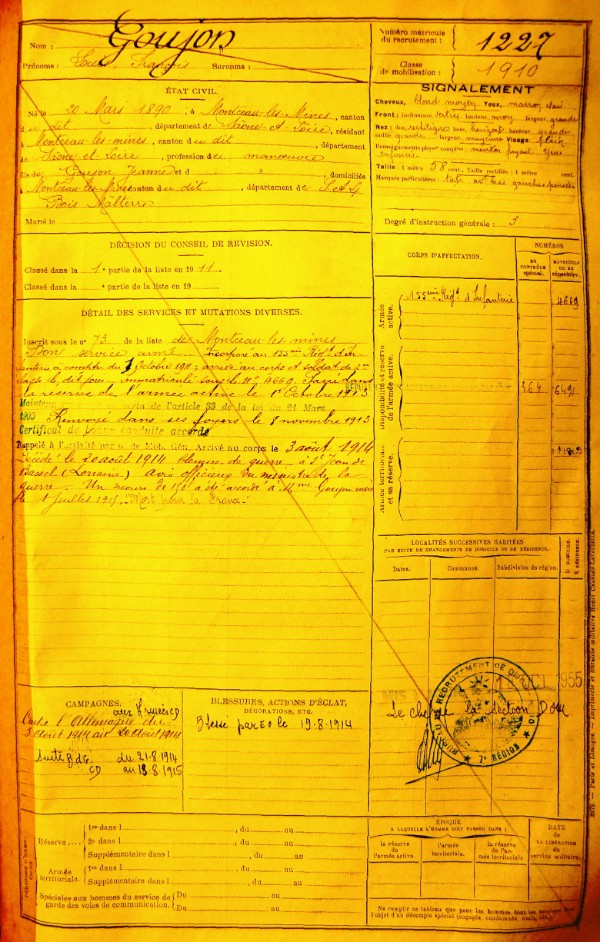 Nom : Goujon
Prénoms : François Surnoms :
Numéro matricule
du recrutement : 1227
Classe
de mobilisation : 1910
ÉTAT CIVIL.
Né le 20 Mars 1890, à Montceau-les-Mines, canton
du dit, département de Saône et Loire, résidant
Montceau-les-mines, canton du dit, département
Saône et Loire, profession de manœuvre
fils de Goujon Jeanne et d " , domiciliés
Montceau les Mines canton du dit, département de S. et L.
Bois
Marié le
SIGNALEMENT
Cheveux, blond moyen Yeux, marron clair
Front : inclinaison, hauteur, moy largeur, grande
Nez : dos rectiligne base, horizont hauteur, grande
saillie, grande largeur, moyenne Visage
Renseignements physion. complém. menton
Taille : 1 mètre 58 cent. Taille rectifiée : 1 mètre cent.
Marques particulières : gauche
Degré d'instruction générale : 3
DÉCISION DU CONSEIL DE RÉVISION.
Classé dans la 1e partie de la liste en 1911.
Classé dans la " partie de la liste en 19
CORPS D'AFFECTATION.
NUMÉROS
AU
CONTRÔLE
spécial.
MATRICULE
OU AU
RÉPERTOIRE.
Armée
active.
Régt d'Infanterie
4669
Disponibilité et réserve
de l'armée active.
364
Armée territoriale
et sa réserve.
DÉTAIL DES SERVICES ET MUTATIONS DIVERSES.
Inscrit sous le n° 73 de la liste de Montceau les mines
Bon service armé. Incorporé au Régt d'In
fanterie à compter du Octobre 1911; arrivé au corps et soldat de 2me
classe le dit jour immatriculé sous le N° 4669. Passé dans
la réserve de l'armée active le 1er Octobre 1913
Maintenu de l'article 33 de la loi du 21 Mars
1905 Renvoyé dans ses foyers le 8 novembre 1913
Certificat de bonne conduite accordé
Rappelé à l'activité par o. de Mob. Gén. Arrivé au corps le 3 août 1914
Décédé le 20 août 1914 de guerre à St Jean de
Bassel (Lorraine) Avis officieux du ministre de la
guerre. Un secours de 150 a été accordé à Mme Goujon mère
le 1 juillet 1915. "Mort pour la France"
LOCALITÉS SUCCESSIVES HABITÉES
PAR SUITE DE CHANGEMENTS DE DOMICILE OU DE RÉSIDENCE.
Dates.
Communes.
Subdivision de région.
D. DOMICILE.
R. RÉSIDENCE.
CAMPAGNES.
aux Armées CD
Contre l'Allemagne du
3 Août 1914 au 20 Août 1914
du 21-8-1914
CD au 18-8-1915
BLESSURES, ACTIONS D'ÉCLAT,
DÉCORATIONS, ETC.
Blessé par le 19-8-1914
1955
Le chef de la Section
BUREAU DE RECRUTEMENT DE
7e RÉGION
Réserve
1re dans l , du au
2e dans l , du au
Supplémentaire dans l , du au
Armée
territoriale.
1re dans l , du au
Supplémentaire dans l , du au
Spéciales aux hommes du service de
garde des voies de communication.
Du au
Du au
ÉPOQUE
À LAQUELLE L'HOMME DOIT PASSER DANS :
la réserve
de l'armée active.
l'armée
territoriale.
la réserve
de l'armée territoriale.
DATE
DE LA LIBÉRATION
du service militaire.
Ne remplir ce tableau que pour les hommes dont les services
l'objet d'un décompte spécial (engagés, condamnés, exclus, etc.)
Paris et Limoges. — Imprimerie et librairie militaires Henri CHARLES-LAVAUZELLE.